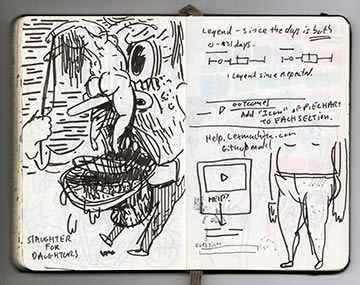 SLAUGHTER
FOR
DAUGHTERS
Legend - since the days is both
0-31 days.
1 Legend since repeated.
outcomes
Add "Icon" of PIECHART
TO EACH SECTION.
Help.
HELP?
question